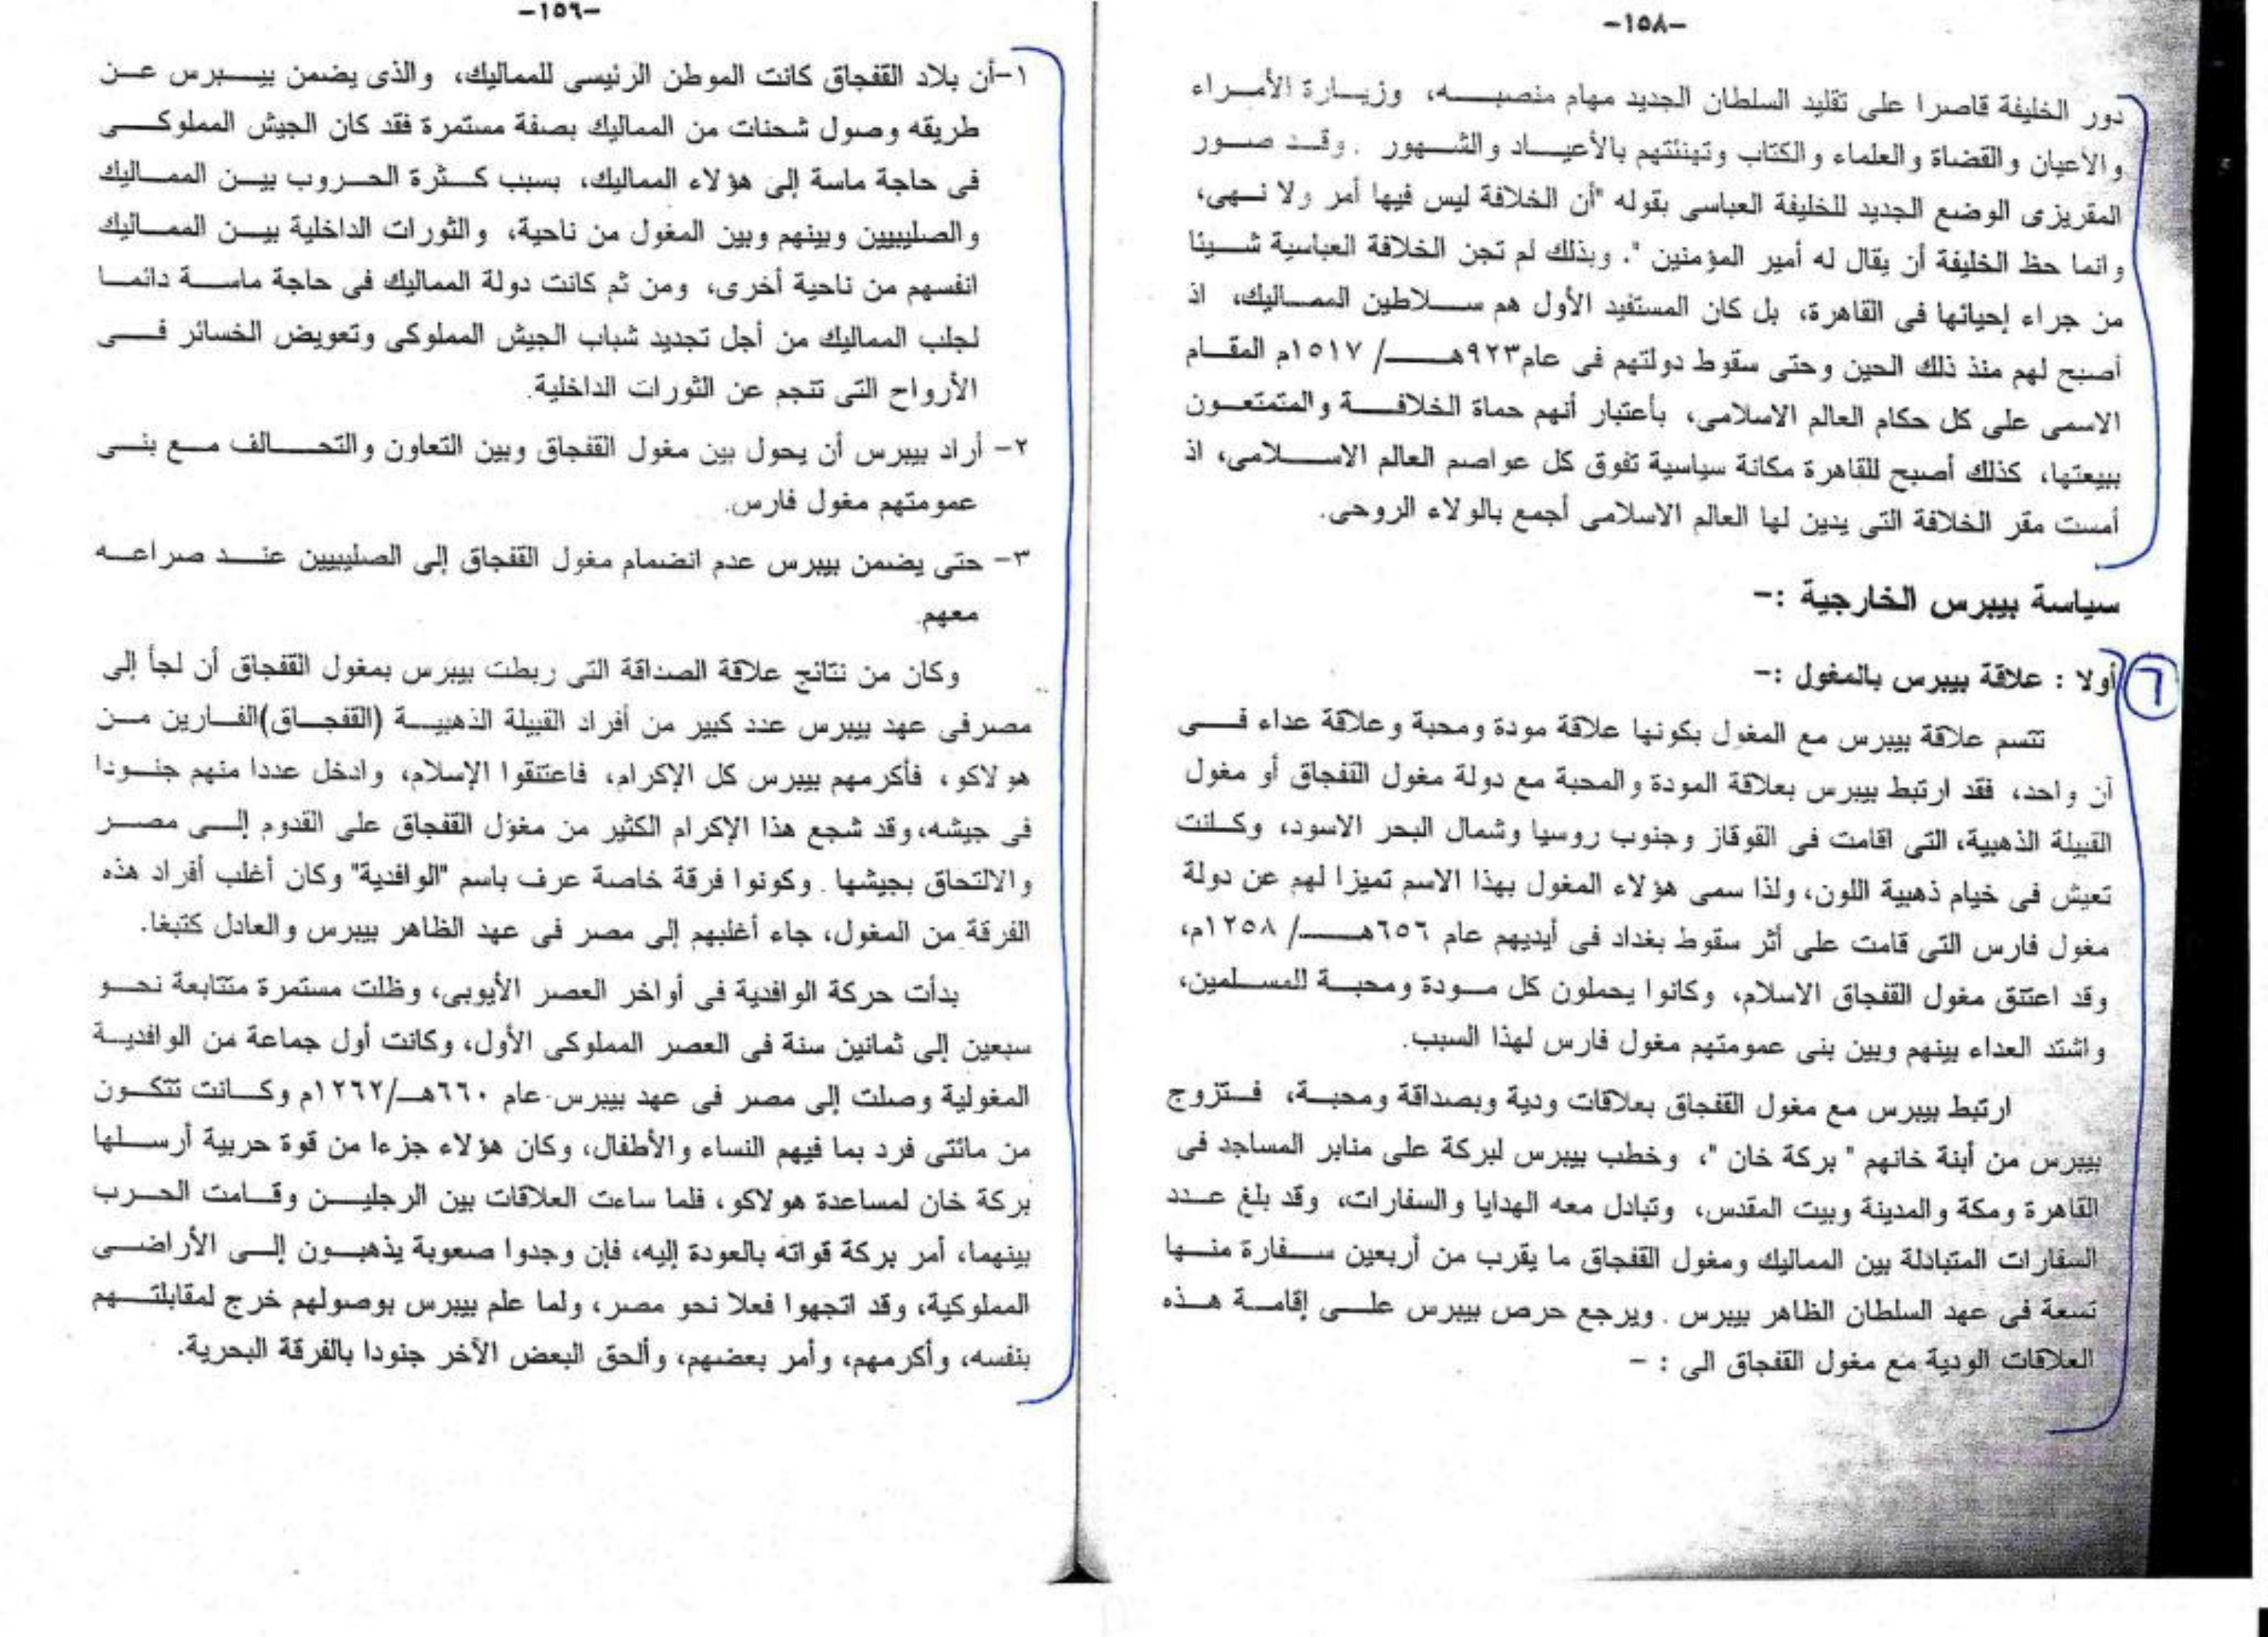 -١٥٨-
دور الخليفة قاصرا على تقليد السلطان الجديد مهام منصبه، وزيارة الأمراء
والأعيان والقضاة والعلماء والكتاب وتهنئتهم بالأعياد والشهور . وقد صور
المقريزى الوضع الجديد للخليفة العباسى بقوله "أن الخلافة ليس فيها أمر ولا نهى،
وانما حظ الخليفة أن يقال له أمير المؤمنين ". وبذلك لم تجن الخلافة العباسية شيئا
من جراء إحيائها فى القاهرة، بل كان المستفيد الأول هم سلاطين المماليك، اذ
أصبح لهم منذ ذلك الحين وحتى سقوط دولتهم فى عام ٩٢٣هـ/ ١٥١٧م المقام
الاسمى على كل حكام العالم الاسلامى، بأعتبار أنهم حماة الخلافة والمتمتعون
ببيعتها، كذلك أصبح للقاهرة مكانة سياسية تفوق كل عواصم العالم الاسلامى، اذ
أمست مقر الخلافة التى يدين لها العالم الاسلامى أجمع بالولاء الروحى.
سياسة بيبرس الخارجية :-
٦
أولا : علاقة بيبرس بالمغول :-
تتسم علاقة بيبرس مع المغول بكونها علاقة مودة ومحبة وعلاقة عداء فى
آن واحد، فقد ارتبط بيبرس بعلاقة المودة والمحبة مع دولة مغول القفجاق أو مغول
القبيلة الذهبية، التى اقامت فى القوقاز وجنوب روسيا وشمال البحر الاسود، وكانت
تعيش فى خيام ذهبية اللون، ولذا سمى هؤلاء المغول بهذا الاسم تميزا لهم عن دولة
مغول فارس التى قامت على أثر سقوط بغداد فى أيديهم عام ٦٥٦هـ/ ١٢٥٨م،
وقد اعتنق مغول القفجاق الاسلام، وكانوا يحملون كل مودة ومحبة للمسلمين،
واشتد العداء بينهم وبين بنى عمومتهم مغول فارس لهذا السبب.
ارتبط بيبرس مع مغول القفجاق بعلاقات ودية وبصداقة ومحبة، فتزوج
بيبرس من أبنة خانهم " بركة خان "، وخطب بيبرس لبركة على منابر المساجد فى
القاهرة ومكة والمدينة وبيت المقدس، وتبادل معه الهدايا والسفارات، وقد بلغ عدد
السفارات المتبادلة بين المماليك ومغول القفجاق ما يقرب من أربعين سفارة منها
تسعة فى عهد السلطان الظاهر بيبرس . ويرجع حرص بيبرس على إقامة هذه
العلاقات الودية مع مغول القفجاق الى : -
-١٥٩-
١-أن بلاد القفجاق كانت الموطن الرئيسى للمماليك، والذى يضمن بيبرس عن
طريقه وصول شحنات من المماليك بصفة مستمرة فقد كان الجيش المملوكى
فى حاجة ماسة إلى هؤلاء المماليك، بسبب كثرة الحروب بين المماليك
والصليبيين وبينهم وبين المغول من ناحية، والثورات الداخلية بين المماليك
انفسهم من ناحية أخرى، ومن ثم كانت دولة المماليك فى حاجة ماسة دائما
لجلب المماليك من أجل تجديد شباب الجيش المملوكى وتعويض الخسائر فى
الأرواح التى تنجم عن الثورات الداخلية.
٢- أراد بيبرس أن يحول بين مغول القفجاق وبين التعاون والتحالف مع بنى
عمومتهم مغول فارس.
٣- حتى يضمن بيبرس عدم انضمام مغول القفجاق إلى الصليبيين عند صراعه
معهم.
وكان من نتائج علاقة الصداقة التى ربطت بيبرس بمغول القفجاق أن لجأ إلى
مصرفى عهد بيبرس عدد كبير من أفراد القبيلة الذهبية (القفجاق)الفارين من
هولاكو، فأكرمهم بيبرس كل الإكرام، فاعتنقوا الإسلام، وادخل عددا منهم جنودا
فى جيشه، وقد شجع هذا الإكرام الكثير من مغول القفجاق على القدوم إلى مصر
والالتحاق بجيشها . وكونوا فرقة خاصة عرف باسم "الوافدية" وكان أغلب أفراد هذه
الفرقة من المغول، جاء أغلبهم إلى مصر فى عهد الظاهر بيبرس والعادل كتبغا.
بدأت حركة الوافدية فى أواخر العصر الأيوبى، وظلت مستمرة متتابعة نحو
سبعين إلى ثمانين سنة فى العصر المملوكى الأول، وكانت أول جماعة من الوافدية
المغولية وصلت إلى مصر فى عهد بيبرس عام ٦٦٠هـ/١٢٦٢م وكانت تتكون
من مائتى فرد بما فيهم النساء والأطفال، وكان هؤلاء جزءا من قوة حربية أرسلها
بركة خان لمساعدة هولاكو، فلما ساءت العلاقات بين الرجلين وقامت الحرب
بينهما، أمر بركة قواته بالعودة إليه، فإن وجدوا صعوبة يذهبون إلى الأراضى
المملوكية، وقد اتجهوا فعلا نحو مصر، ولما علم بيبرس بوصولهم خرج لمقابلتهم
بنفسه، وأكرمهم، وأمر بعضهم، وألحق البعض الآخر جنودا بالفرقة البحرية.